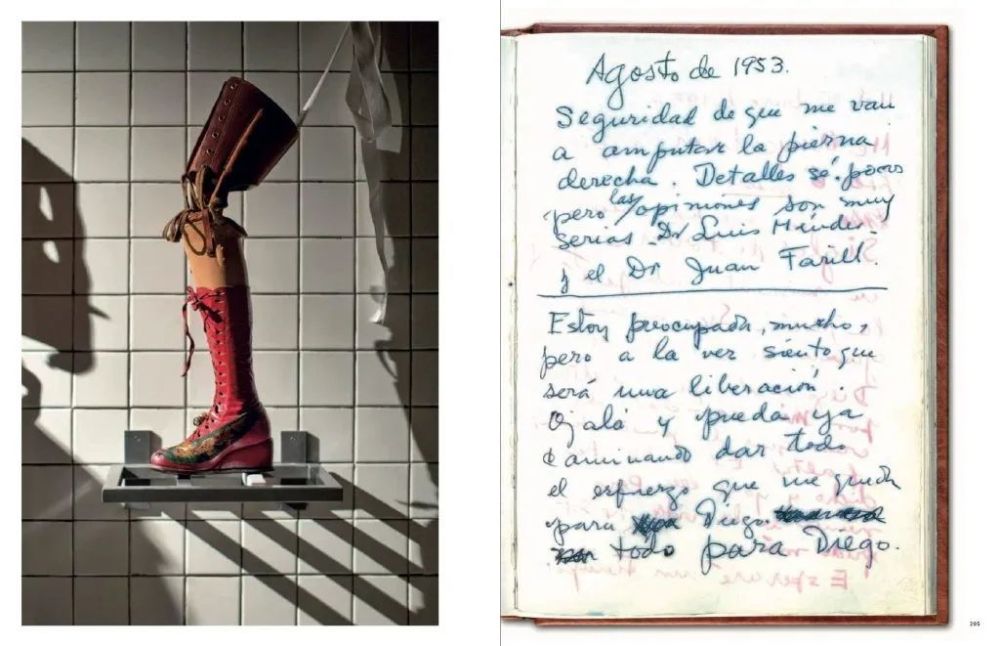 Agosto de 1953.
Seguridad de que me van
a amputar la pierna
derecha. Detalles sé pocos
pero las opiniones son muy
serias. Dr Luis Méndez
y el Dr Juan Farill.
Estoy preocupada, mucho,
pero a la vez siento que
será una liberación.
Ojalá y pueda ya
caminando dar todo
el esfuerzo que me queda
para Diego
todo para Diego.
205